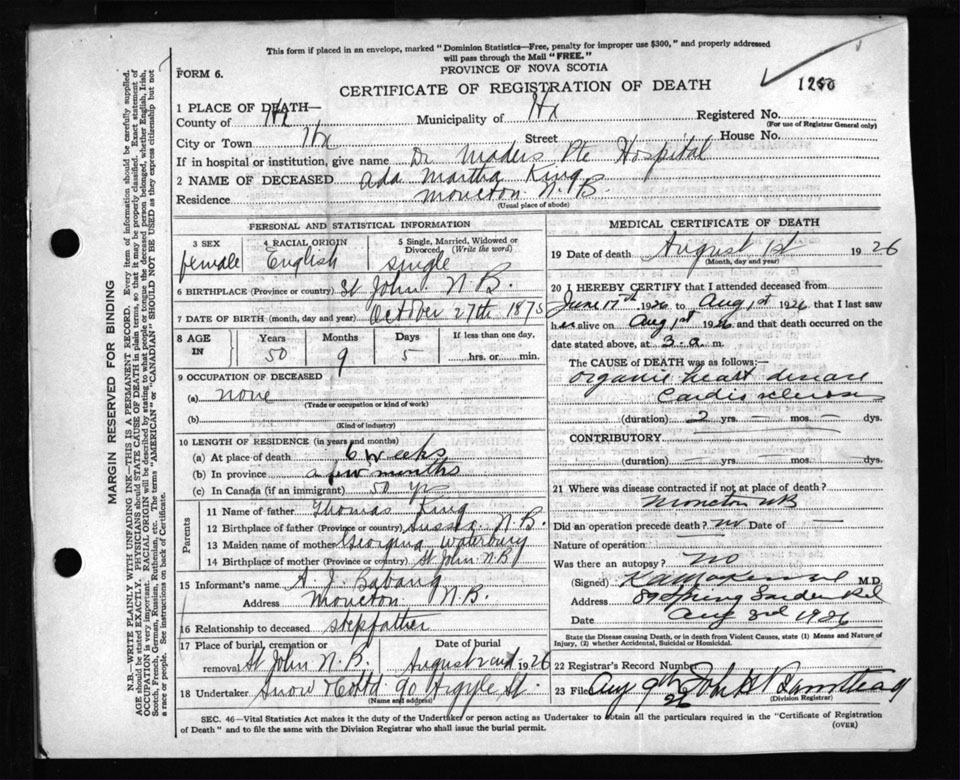 This form if placed in an envelope, marked "Dominion Statistics—Free, penalty for improper use $300," and properly addressed
will pass through the Mail "FREE."
PROVINCE OF NOVA SCOTIA
FORM 6.
CERTIFICATE OF REGISTRATION OF DEATH
1250
1 PLACE OF DEATH—
County of Hx Municipality of Hx Registered No.
(For use of Registrar General only)
City or Town Hx Street House No.
If in hospital or institution, give name Dr Maders Pte Hospital
2 NAME OF DECEASED Ada Martha King
Residence Moncton N.B.
(Usual place of abode)
PERSONAL AND STATISTICAL INFORMATION
3 SEX 4 RACIAL ORIGIN 5 Single, Married, Widowed or
Divorced (Write the word)
female English single
6 BIRTHPLACE (Province or country) St John N.B.
7 DATE OF BIRTH (month, day and year) October 27th 1875
8 AGE IN Years Months Days If less than one day,
50 9 5 hrs. or min.
9 OCCUPATION OF DECEASED
(a) none
(Trade or occupation or kind of work)
(b)
(Kind of industry)
10 LENGTH OF RESIDENCE (in years and months)
(a) At place of death 6 weeks
(b) In province a few months
(c) In Canada (if an immigrant) 50 yr
Parents
11 Name of father Thomas King
12 Birthplace of father (Province or country) Sussex N.B.
13 Maiden name of mother Georgina Waterbury
14 Birthplace of mother (Province or country) St John N.B
15 Informant's name A. J. Babang
Address Moncton N.B.
16 Relationship to deceased stepfather
17 Place of burial, cremation or Date of burial
removal St John N.B. August 2nd 1926
18 Undertaker Snow & Co Ltd 90 Argyle St.
(Name and address)
MEDICAL CERTIFICATE OF DEATH
19 Date of death August 1st 1926
(Month, day and year)
20 I HEREBY CERTIFY that I attended deceased from
June 17th 1926 to Aug 1st 1926 that I last saw
her alive on Aug 1st 1926 and that death occurred on
date stated above, at 3-a m.
The CAUSE of DEATH was as follows:—
organic heart disease
Cardio sclerosis
(duration) 2 yrs. — mos. — dys.
CONTRIBUTORY
(duration) — yrs. — mos. — dys.
21 Where was disease contracted if not at place of death?
Moncton NB
Did an operation precede death? no Date of —
Nature of operation
Was there an autopsy? no
(Signed) M.D.
Address 89 Spring Garden Rd
Date Aug 2nd 1926
State the Disease causing Death, or in death from Violent Causes, state (1) Means and Nature of
Injury, (2) whether Accidental, Suicidal or Homicidal.
22 Registrar's Record Number
23 Filed Aug 9th 26 John
(Division Registrar)
SEC. 46—Vital Statistics Act makes it the duty of the Undertaker or person acting as Undertaker to obtain all the particulars required in the "Certificate of Registration
of Death" and to file the same with the Division Registrar who shall issue the burial permit. (OVER)
MARGIN RESERVED FOR BINDING
N.B.—WRITE PLAINLY WITH UNFADING INK—THIS IS A PERMANENT RECORD. Every item of information should be carefully supplied.
AGE should be stated EXACTLY. PHYSICIANS should STATE CAUSE OF DEATH in plain terms, so that it may be properly classified. Exact statement of
OCCUPATION is very important. RACIAL ORIGIN will be described by stating to what people or tongue the deceased person belonged, whether English, Irish,
Scotch, French, German, Russian, Ruthenian, etc. The terms "AMERICAN" or "CANADIAN" SHOULD NOT BE USED as they express citizenship but not
a race or people. See instructions on back of Certificate.